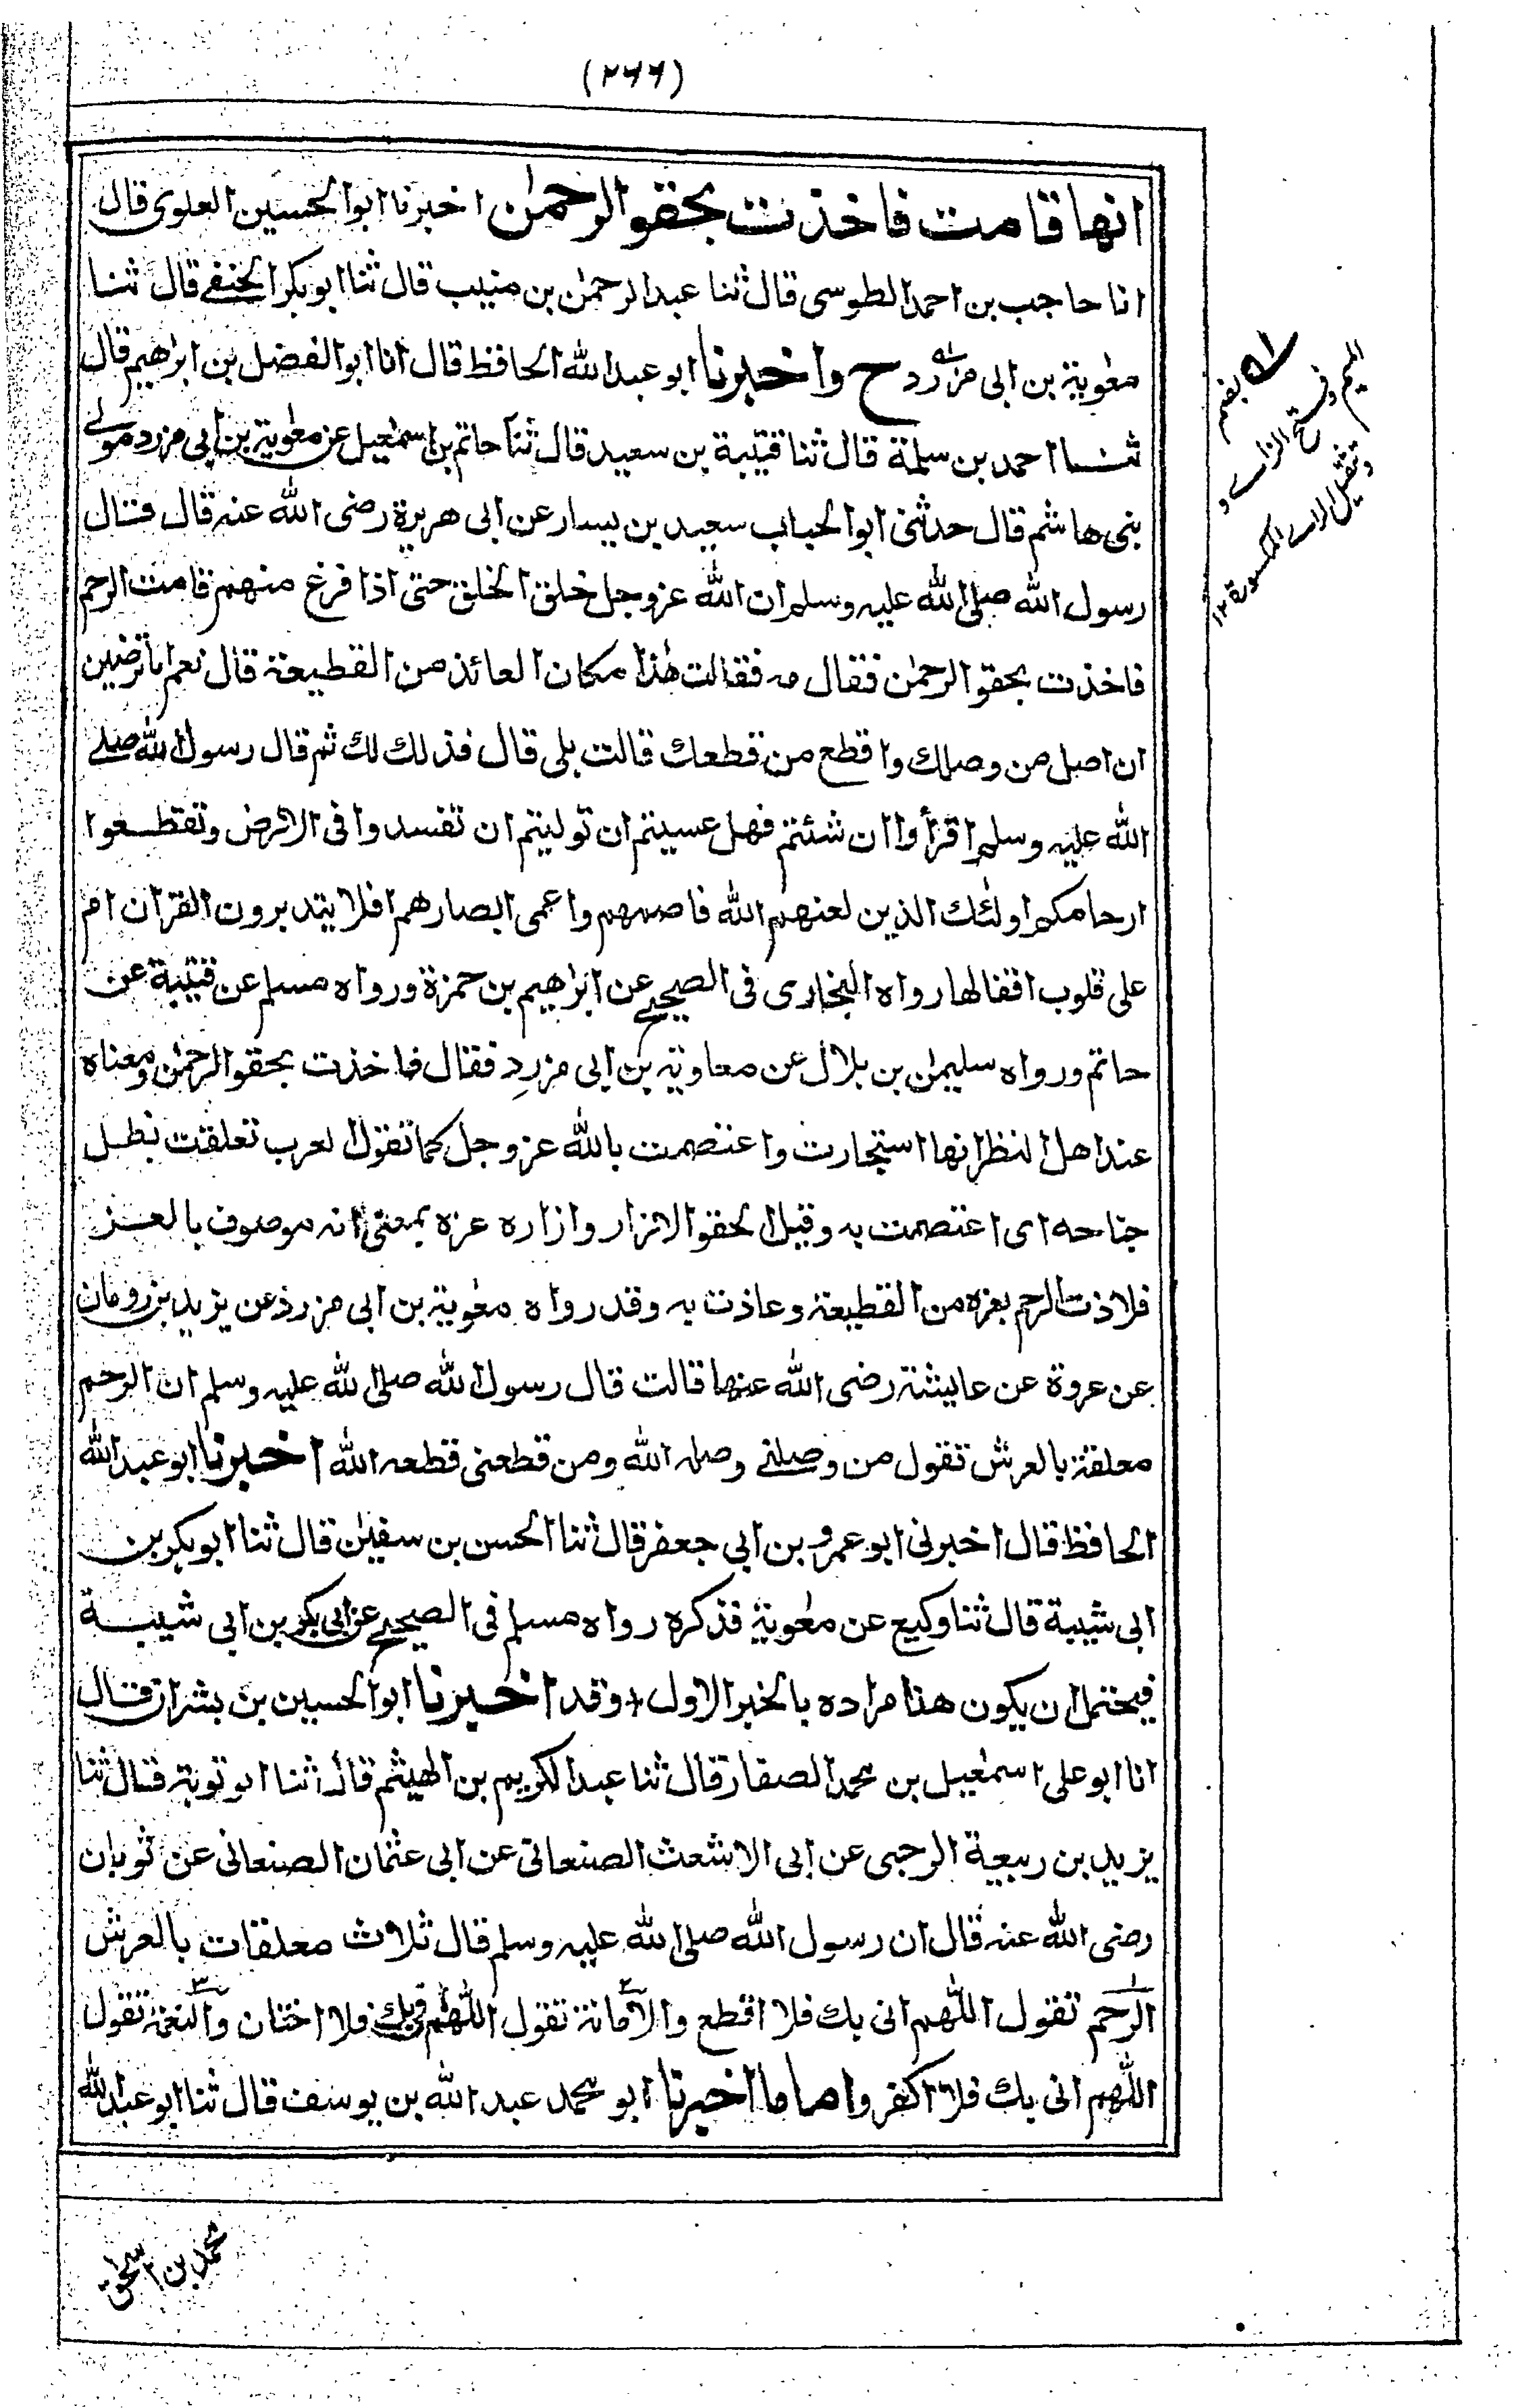 (٢٦٦)
انها قامت فاخذت بحقو الرحمٰن اخبرنا ابو الحسين العلوى قال
انا حاجب بن احمد الطوسى قال ثنا عبد الرحمٰن بن منيب قال ثنا ابو بكر الحنفے قال ثنا
معٰوية بن ابى مزرد ح واخبرنا ابو عبد الله الحافظ قال انا ابو الفضل بن ابرٰهيم قال
ثنا احمد بن سلمة قال ثنا قتيبة بن سعيد قال ثنا حاتم بن اسمٰعيل عن معٰوية بن ابى مزرد مولے
بنى هاشم قال حدثنى ابو الحباب سعيد بن يسار عن ابى هريرة رضى الله عنه قال قال
رسول الله صلى الله عليه وسلم ان الله عز وجل خلق الخلق حتى اذا فرغ منهم قامت الرحم
فاخذت بحقو الرحمٰن فقال مه فقالت هٰذا مكان العائذ من القطيعة قال نعم اما ترضين
ان اصل من وصلك واقطع من قطعك قالت بلى قال فذلك لك ثم قال رسول الله صلے
الله عليه وسلم اقرأوا ان شئتم فهل عسيتم ان توليتم ان تفسدوا فى الارض وتقطعوا
ارحامكم اولٰئك الذين لعنهم الله فاصمهم واعمى ابصارهم افلا يتدبرون القرآن ام
على قلوب اقفالها رواه البخارى فى الصحيح عن ابرٰهيم بن حمزة ورواه مسلم عن قتيبة عن
حاتم ورواه سليمٰن بن بلال عن معاوية بن ابى مزرِد فقال فاخذت بحقو الرحمٰن ومعناه
عند اهل النظر انها استجارت واعتصمت بالله عز وجل كما تقول العرب تعلقت بظل
جناحه اى اعتصمت به وقيل الحقو الازار وازاره عزه بمعنى انه موصوف بالعز
فلاذت الرحم بعزه من القطيعة وعاذت به وقد رواه معٰوية بن ابى مزرد عن يزيد بن رومان
عن عروة عن عايشة رضى الله عنها قالت قال رسول الله صلى الله عليه وسلم ان الرحم
معلقة بالعرش تقول من وصلنے وصله الله ومن قطعنى قطعه الله اخبرنا ابو عبد الله
الحافظ قال اخبرنى ابو عمرو بن ابى جعفر قال ثنا الحسن بن سفيٰن قال ثنا ابو بكر بن
ابى شيبة قال ثنا وكيع عن معٰوية فذكره رواه مسلم فى الصحيح عن ابى بكر بن ابى شيبة
فيحتمل ان يكون هذا مراده بالخبر الاول وقد اخبرنا ابو الحسين بن بشران قال
انا ابو على اسمٰعيل بن محمد الصفار قال ثنا عبد الكريم بن الهيثم قال ثنا ابو توبة قال ثنا
يزيد بن ربيعة الرحبى عن ابى الاشعث الصنعانى عن ابى عثمان الصنعانى عن ثوبان
رضى الله عنه قال ان رسول الله صلى الله عليه وسلم قال ثلاث معلقات بالعرش
الرحم تقول اللٰهم انى بك فلا اقطع والامانة تقول اللٰهم انى بك فلا اختان والنعمة تقول
اللٰهم انى بك فلا اكفر واما ما اخبرنا ابو محمد عبد الله بن يوسف قال ثنا ابو عبد الله
محمد بن اسحٰق
له بضم
الميم وفتح الزاے و
وتثقيل الراے المكسورة ١٢